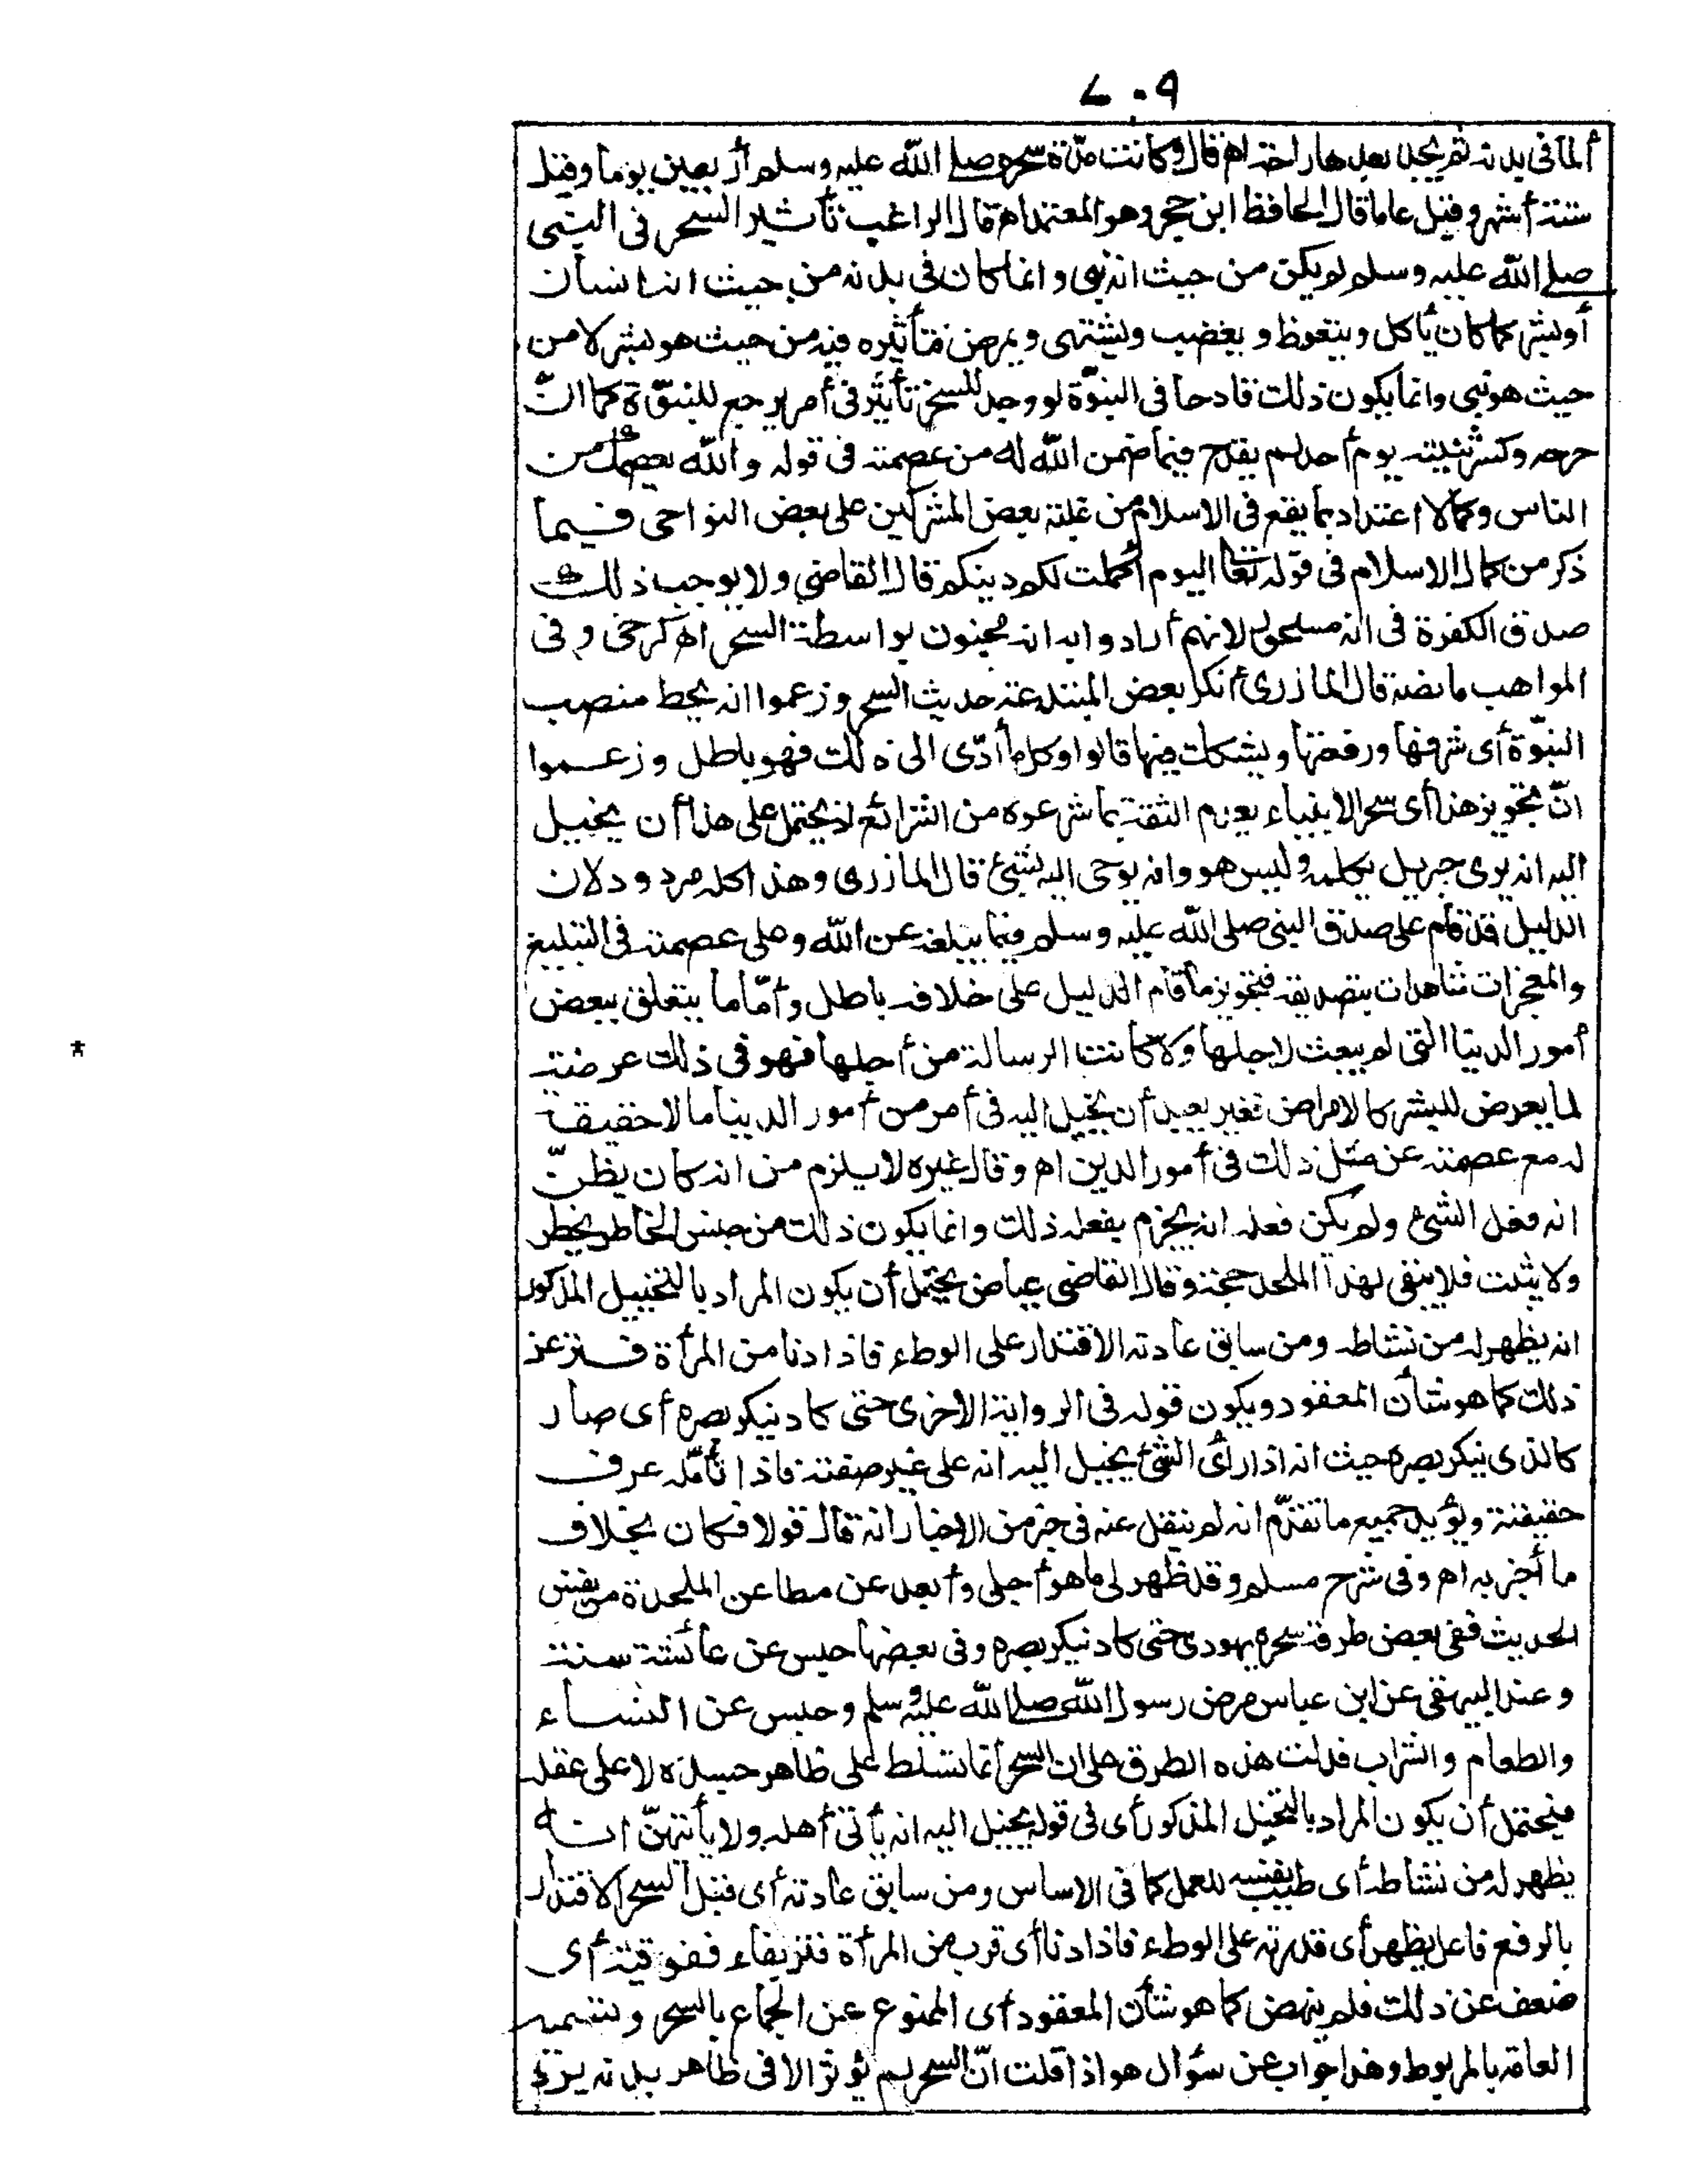 ٧٠٩
ألما فى بدنه ثم يجد بعدها راحة اه قال وكانت مدّة سحره صلى الله عليه وسلم أربعين يوما وقيل
ستة أشهر وقيل عاما قال الحافظ ابن حجر وهو المعتمد اه قال الراغب تأثير السحر فى النبى
صلى الله عليه وسلم لم يكن من حيث انه نبى وانما كان فى بدنه من حيث انه انسان
أو بشر كما كان يأكل ويتغوظ ويغضب ويشتهى ويمرض فتأثيره فيه من حيث هو بشر لا من
حيث هو نبى وانما يكون ذلك قادحا فى النبوّة لو وجد للسحر تأثير فى أمر يرجع للنبوّة كما انّ
جرحه وكسر ثنيته يوم أحد لم يقدح فيما ضمن الله له من عصمته فى قوله والله يعصمك من
الناس وكما لا اعتداد بما يقع فى الاسلام من غلبة بعض المشركين على بعض النواحى فيما
ذكر من كمال الاسلام فى قوله تعالى اليوم أكملت لكم دينكم قال القاضى ولا يوجب ذلك
صدق الكفرة فى انه مسحور لانهم أرادوا به انه مجنون بواسطة السحر اه كرخى وفى
المواهب ما نصه قال المازرى أنكر بعض المبتدعة حديث السحر وزعموا انه يحط منصب
النبوّة أى شرفها ورفعتها ويشكك فيها قالوا وكل ما أدّى الى ذلك فهو باطل وزعموا
انّ تجويز هذا أى سحر الانبياء يعدم الثقة بما شرعوه من الشرائع اذ يحتمل على هذا أن يخيل
اليه انه يرى جبريل يكلمه وليس هو وانه يوحى اليه بشئ قال المازرى وهذا كله مردود لان
الدليل قد قام على صدق النبى صلى الله عليه وسلم فيما يبلغه عن الله وعلى عصمته فى التبليغ
والمعجزات شاهدات بتصديقه فتجويز ما قام الدليل على خلافه باطل وأمّا ما يتعلق ببعض
أمور الدنيا التى لم يبعث لاجلها ولا كانت الرسالة من أجلها فهو فى ذلك عرضة
لما يعرض للبشر كالامراض فغير بعيد أن يخيل اليه فى أمر من أمور الدنيا ما لا حقيقة
له مع عصمته عن مثل ذلك فى أمور الدين اه وقال غيره لا يلزم من انه كان يظنّ
انه فعل الشئ ولم يكن فعله انه يجزم بفعله ذلك وانما يكون ذلك من جنس الخاطر يخطر
ولا يثبت فلا يبقى لهذا الملحد حجة وقال القاضى عياض يحتمل أن يكون المراد بالتخييل المذكور
انه يظهر له من نشاطه ومن سابق عادته الاقتدار على الوطء فاذا دنا من المرأة فتر عن
ذلك كما هو شأن المعقود ويكون قوله فى الرواية الاخرى حتى كاد ينكر بصره أى صار
كالذى ينكر بصره حيث انه اذا رأى الشئ يخيل اليه انه على غير صفته فاذا تأمّله عرف
حقيقته ويؤيد جميع ما تقدّم انه لم ينقل عنه فى خبر من الاخبار انه قال قولا فكان بخلاف
ما أخبر به اه وفى شرح مسلم وقد ظهر لى ما هو أجلى وأبعد عن مطاعن الملحدة من نفس
الحديث ففى بعض طرقه سحره يهودى حتى كاد ينكر بصره وفى بعضها حبس عن عائشة سنة
وعند البيهقى عن ابن عباس مرض رسول الله صلى الله عليه وسلم وحبس عن النساء
والطعام والشراب فدلت هذه الطرق على ان السحر انما تسلط على ظاهر جسده لا على عقله
فيحتمل أن يكون المراد بالتخيل المذكور أى فى قوله يخيل اليه انه يأتى أهله ولا يأتيهنّ انه
يظهر له من نشاطه أى طيب نفسه للعمل كما فى الاساس ومن سابق عادته أى قبل السحر الاقتدار
بالرفع فاعل يظهر أى قدرته على الوطء فاذا دنا أى قرب من المرأة فتر بفاء ففوقية أى
ضعف عن ذلك فلم ينهض كما هو شأن المعقود أى الممنوع عن الجماع بالسحر وتسميه
العامّة بالمربوط وهذا جواب عن سؤال هو اذا قلت انّ السحر لم يؤثر الا فى ظاهر بدنه يرد
*